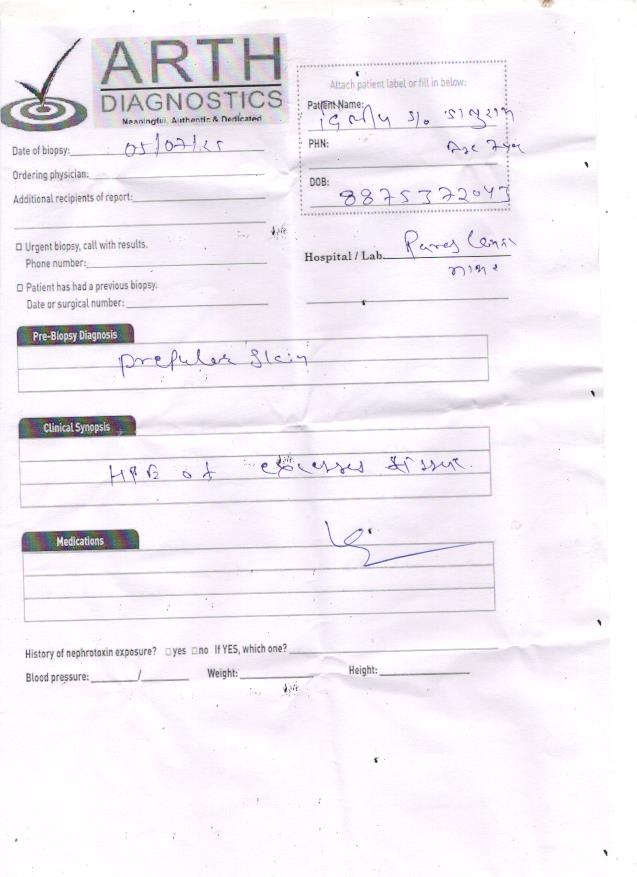 ARTH
DIAGNOSTICS
Meaningful, Authentic & Dedicated
Attach patient label or fill in below:
Patient Name:
S/o
PHN:
Age
Date of biopsy: 05/07/25
Ordering physician:
DOB:
8875372043
Additional recipients of report:
□ Urgent biopsy, call with results.
Phone number:
Hospital / Lab.
□ Patient has had a previous biopsy.
Date or surgical number:
Pre-Biopsy Diagnosis
skin
Clinical Synopsis
HPE of tissue.
Medications
History of nephrotoxin exposure? □yes □no If YES, which one?
Blood pressure: / Weight: Height: